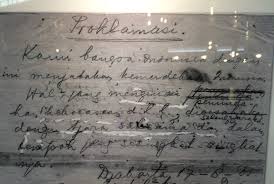 Proklamasi.
Kami bangsa Indonesia dengan
ini menjatakan kemerdekaan Indonesia.
Hal2 jang mengenai
ka, kekoeasaan d.l.l., diseleng-
dengan tjara saksama dan dalam
tempoh jang
nja.
Djakarta, 17-8-